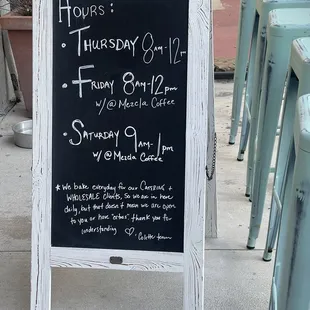 HOURS:
• THURSDAY 8am-12
• FRIDAY 8am-12pm
w/@Mezcla Coffee
• SATURDAY 9am-1pm
w/@Mezcla Coffee
* We bake everyday for our CATERING +
WHOLESALE clients, so we are in here
daily, but that doesn't mean we are open
to you or have "extras". thank you for
understanding ♡ -
team